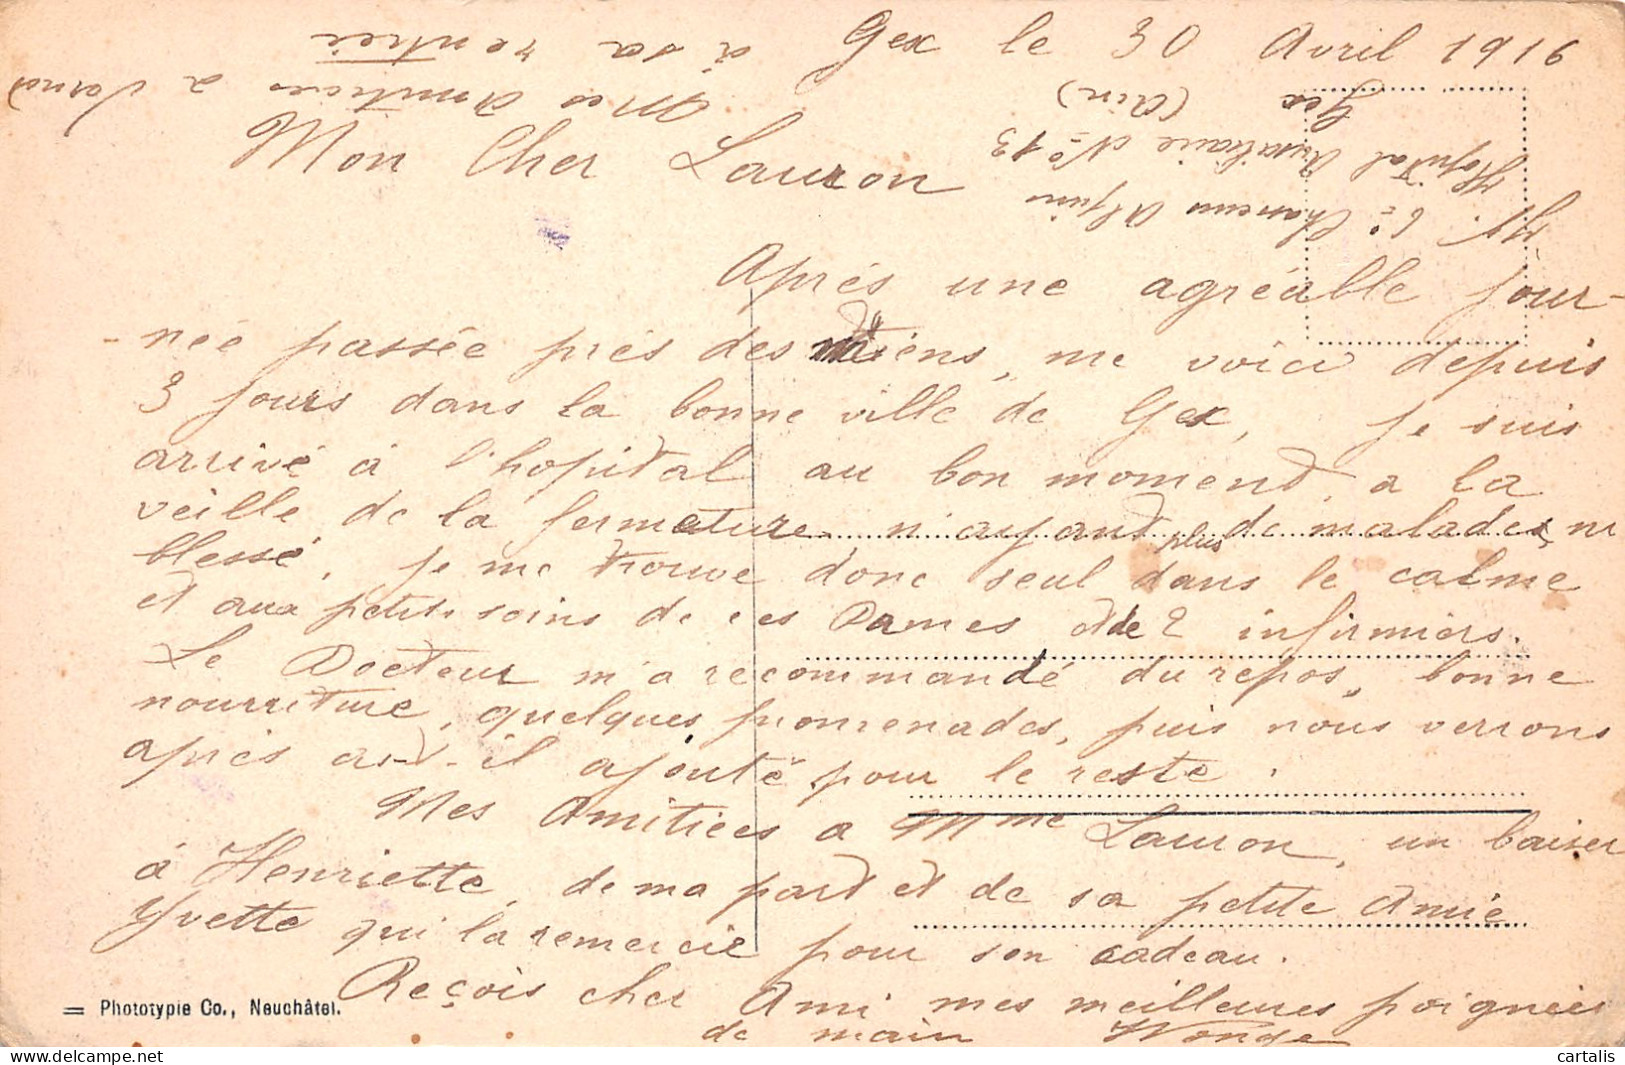 Gex le 30 Avril 1916
Mon Cher Lauron
Après une agréable jour-
née passée près des tiens, me voici depuis
3 jours dans la bonne ville de Gex, je suis
arrivé à l'hopital au bon moment, a la
veille de la fermeture n'ayant plus de malades ni
blessé, je me trouve donc seul dans le calme
et aux petits soins de ces Dames et de 2 infirmiers.
Le Docteur m'a recommandé du repos, bonne
nourriture, quelques promenades, puis nous verrons
après a-t-il ajouté pour le reste.
Mes Amitiées a Mme Lauron, un baiser
à Henriette, de ma part et de sa petite Amie
Yvette qui la remercie pour son cadeau.
Reçois cher Ami mes meilleures poignées
de main
Mes Amitiées a
à sa rentrée
6e
Hopital Auxiliaire No 13
Gex (Ain)
= Phototypie Co., Neuchâtel.
cartalis